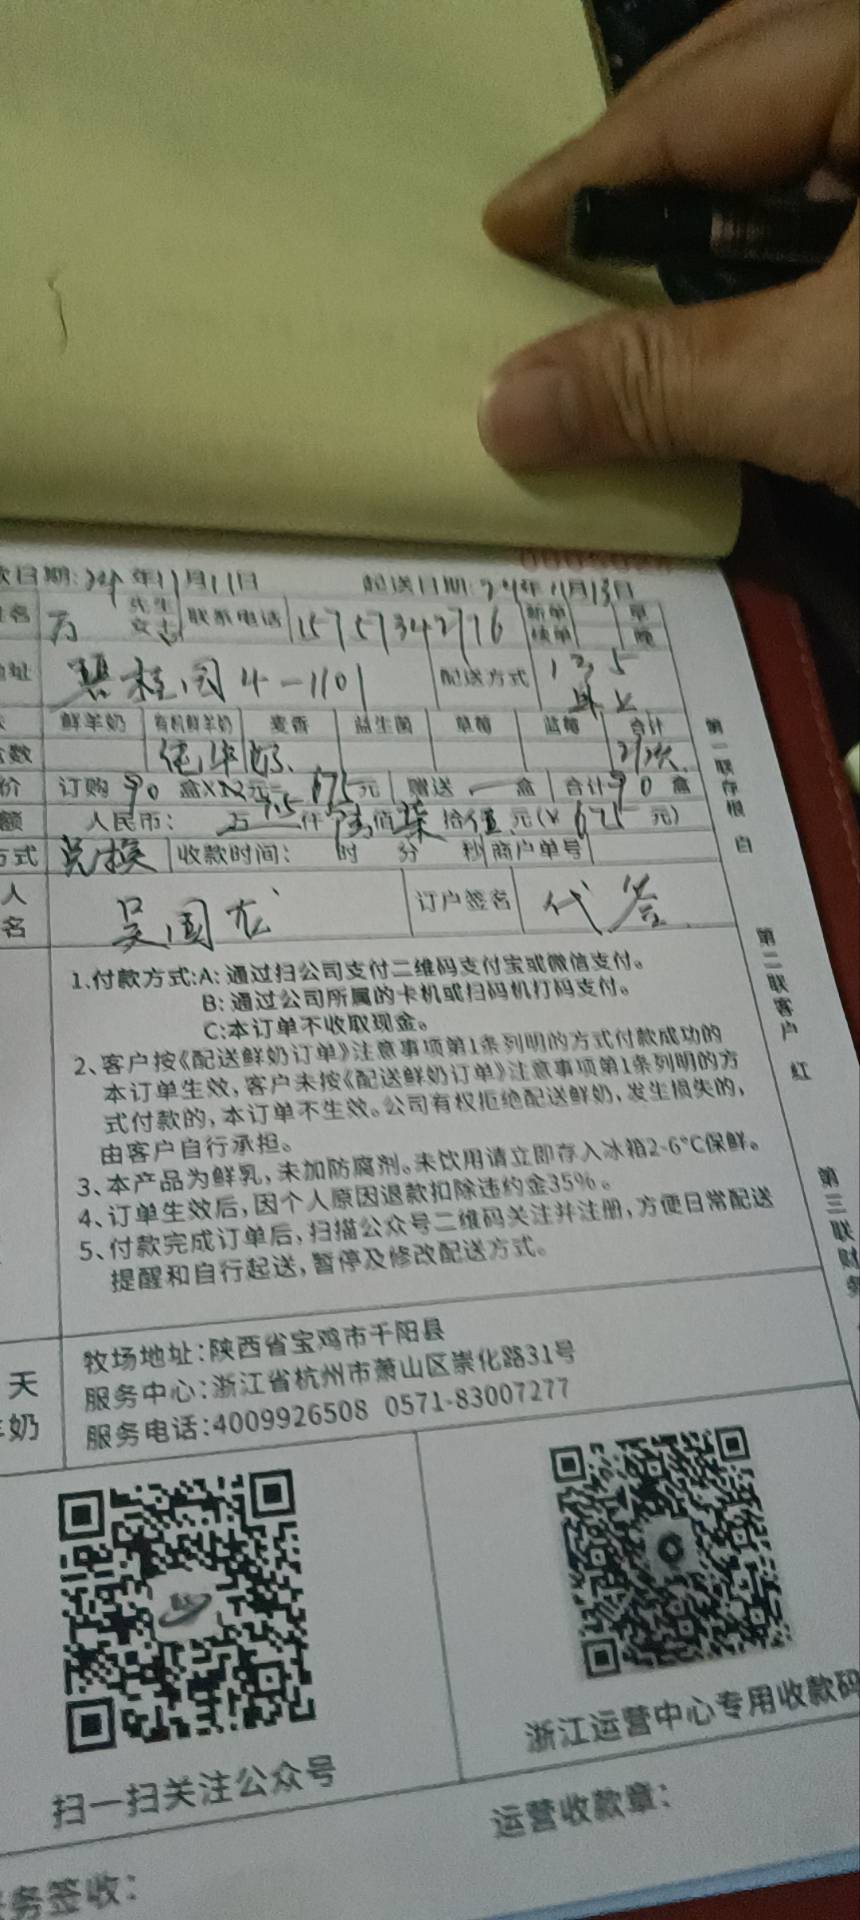 款日期:24年11月11日 起送日期:24年11月13日
姓名 万 先生 女士 联系电话 15757342776 新单 续单 早 晚
地址 碧桂园4-1101 配送方式 1 3 5
鲜羊奶 有机鲜羊奶 麦香 益生菌 草莓 蓝莓 合计
数 纯羊奶 2/次
价 订购 90 盒X 7.5 元= 675元 赠送 一 盒 合计90盒
额 人民币: 万 仟 陆佰 柒拾伍元(¥ 675 元)
方式 兑换 收款时间: 时 分 秒 商户单号
人
名 吴国龙 订户签名 代签
1.付款方式:A:通过扫公司支付二维码支付宝或微信支付。
B:通过公司所属的卡机或扫码机打码支付。
C:本订单不收取现金。
2、客户按《配送鲜奶订单》注意事项第1条列明的方式付款成功的
本订单生效,客户未按《配送鲜奶订单》注意事项第1条列明的方
式付款的,本订单不生效。公司有权拒绝配送鲜奶,发生损失的,
由客户自行承担。
3、本产品为鲜乳,未加防腐剂。未饮用请立即存入冰箱2-6°C保鲜。
4、订单生效后,因个人原因退款扣除违约金35%。
5、付款完成订单后,扫描公众号二维码关注并注册,方便日常配送
提醒和自行起送,暂停及修改配送方式。
第一联存根 白
第二联客户 红
第三联财务
天
羊奶
牧场地址:陕西省宝鸡市千阳县
服务中心:浙江省杭州市萧山区崇化路31号
服务电话:4009926508 0571-83007277
扫一扫关注公众号
浙江运营中心专用收款码
运营收款章:
务签收: